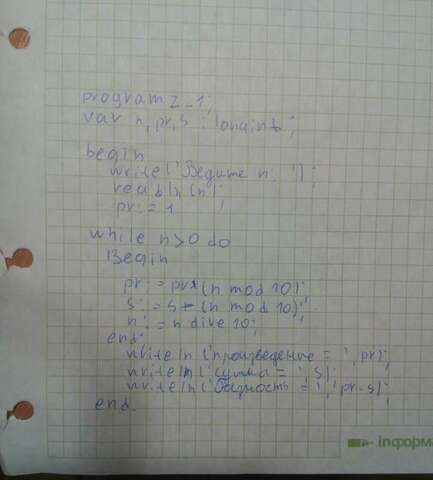 program z_1;
var n, pr, s : longint;
begin
write('Ведите n: ');
readln(n);
pr:=1;
while n>0 do
Begin
pr:=pr*(n mod 10);
s:=s+(n mod 10);
n:=n dive 10;
end;
writeln('произведение = ', pr);
writeln('сумма = ', s);
writeln('Разность = ', pr-s);
end.
Інформа